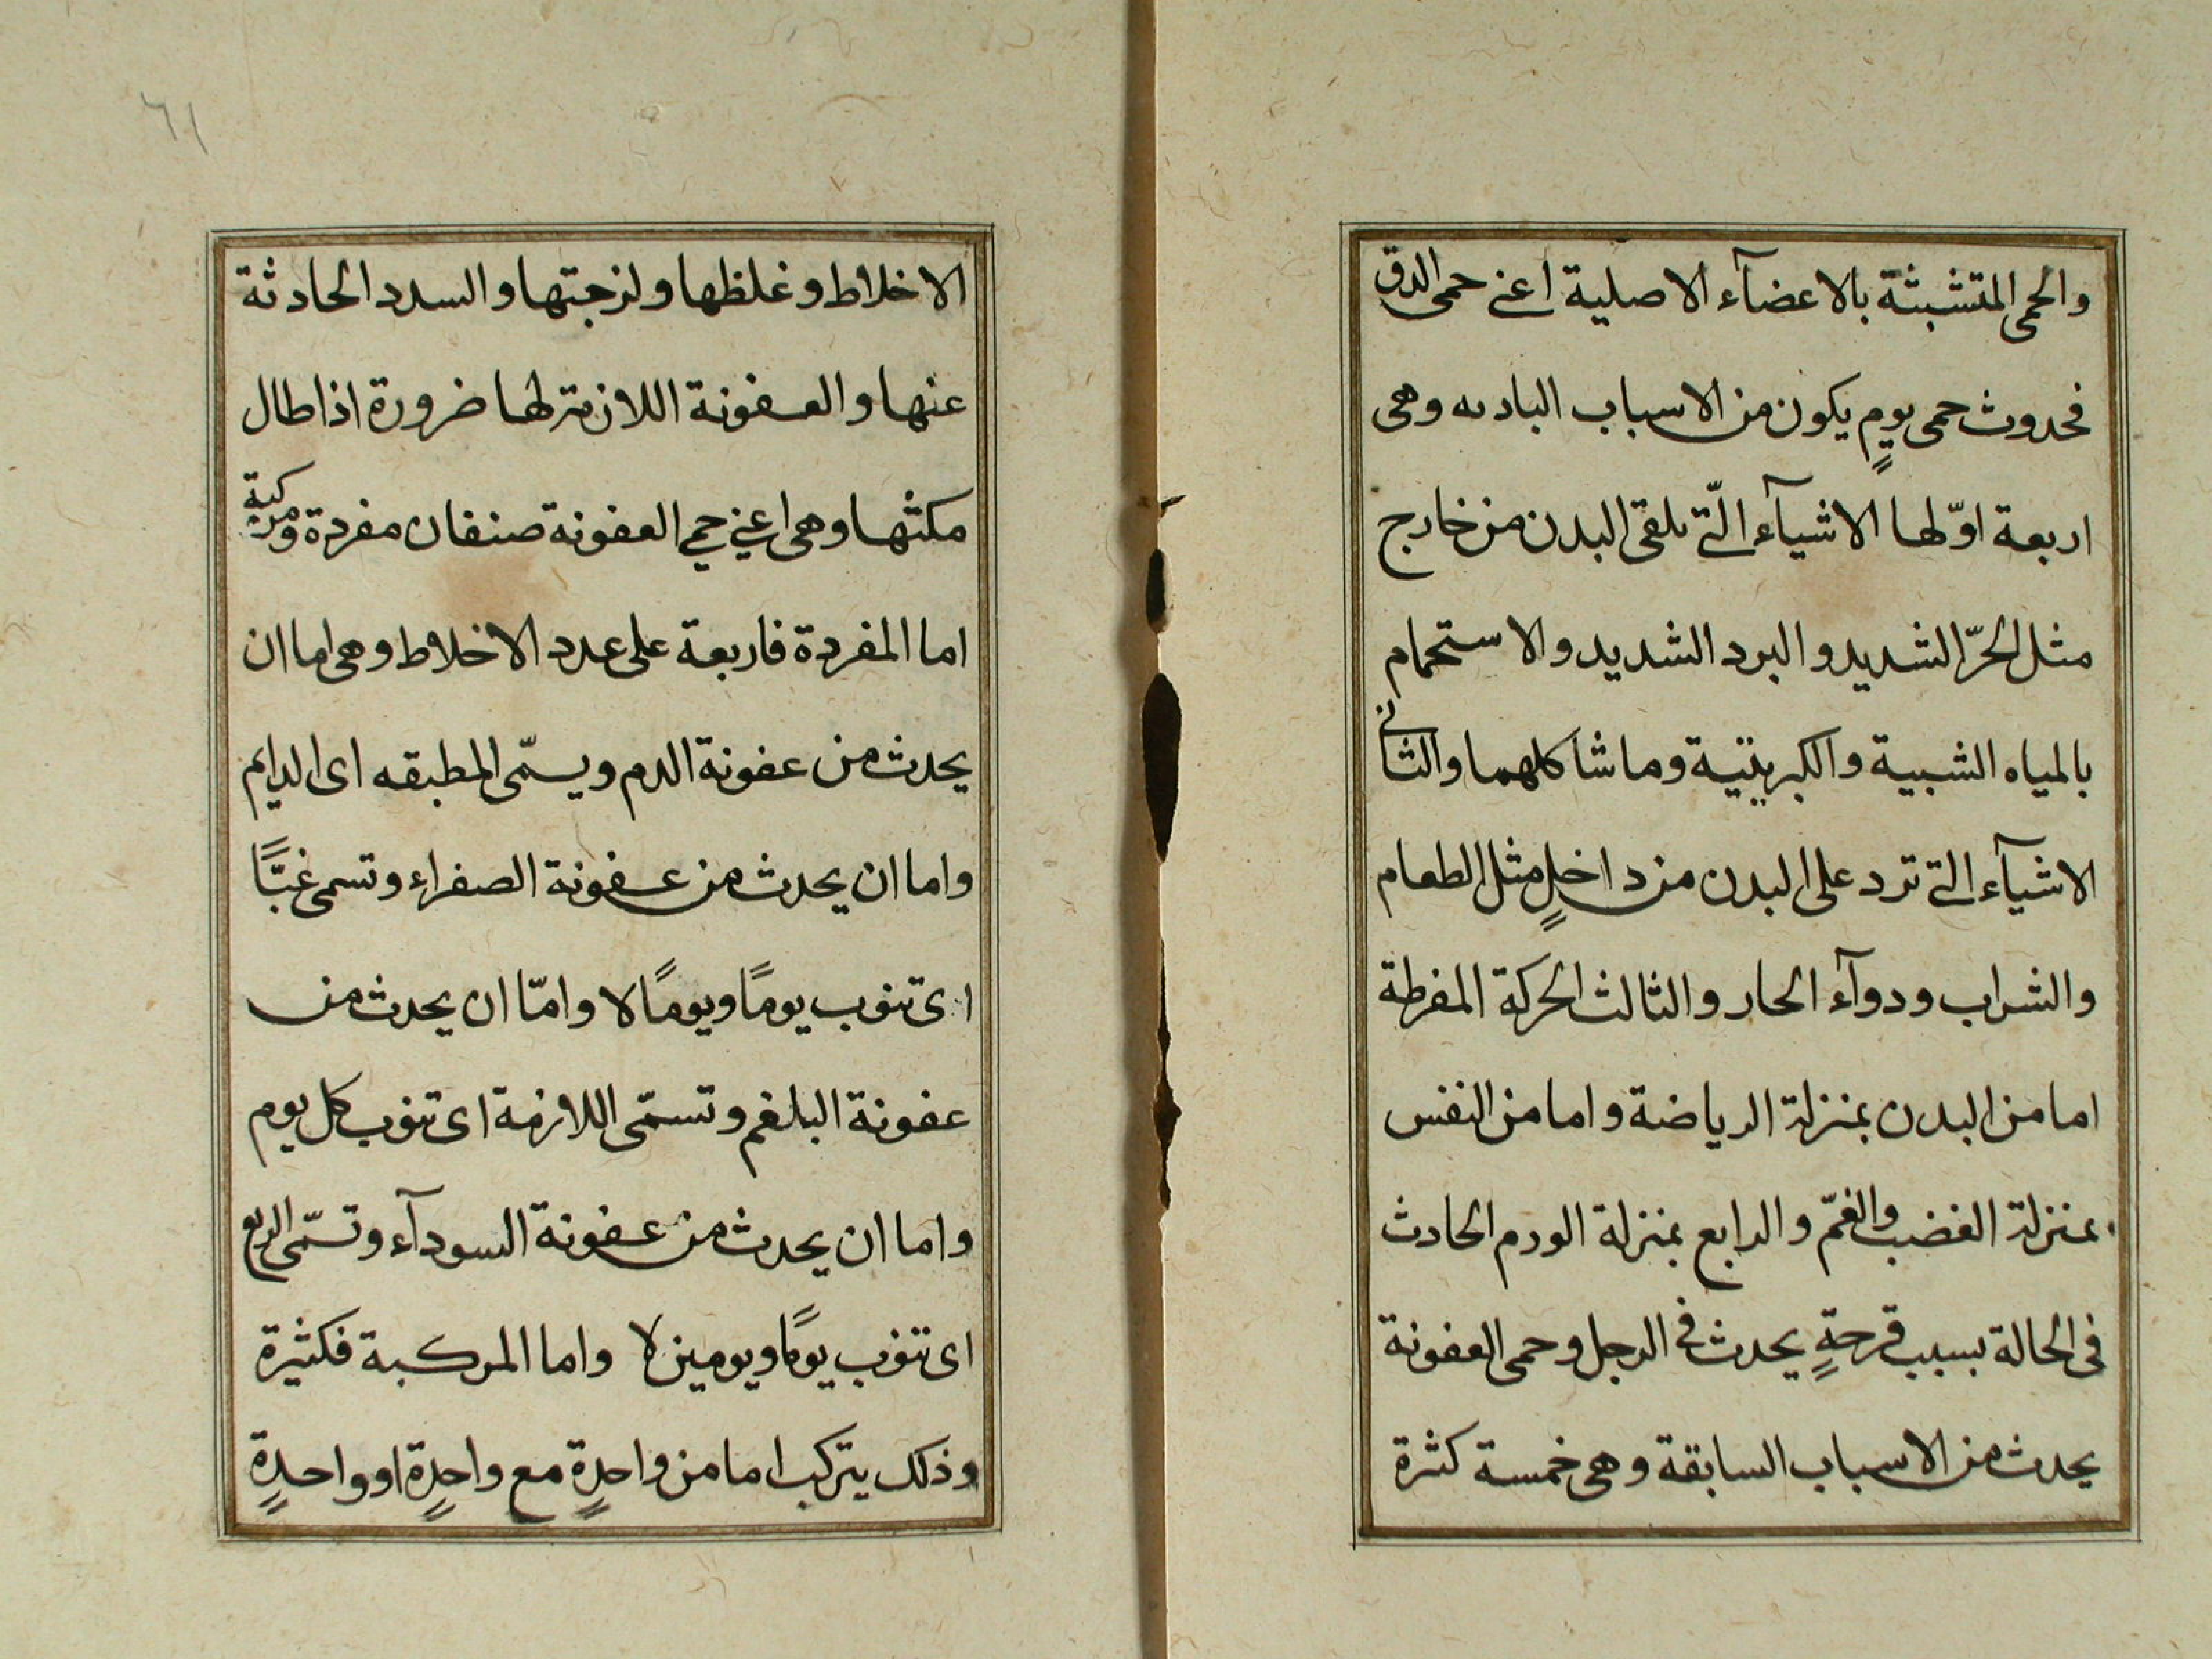 والحمى المتشبثة بالاعضآء الاصلية اعنى حمى الدق
فحدوث حمى يومٍ يكون من الاسباب البادىه وهى
اربعة اوّلها الاشيآء الّتى تلقى البدن من خارج
مثل الحرّ الشديد والبرد الشديد والاستحمام
بالمياه الشبية والكبريتية وما شاكلهما والثانى
الاشيآء التى ترد على البدن من داخلٍ مثل الطعام
والشراب ودوآء الحار والثالث الحركة المفرطة
اما من البدن بمنزلة الرياضة واما من النفس
بمنزلة الغضب والغمّ والرابع بمنزلة الورم الحادث
فى الحالة بسبب قرحةٍ يحدث فى الرجل وحمى العفونة
يحدث من الاسباب السابقة وهى خمسة كثرة
٦١
الاخلاط وغلظها ولزجتها والسدد الحادثة
عنها والعفونة اللازمة لها ضرورة اذا طال
مكثها وهى اعنى حمى العفونة صنفان مفردة ومركبة
اما المفردة فاربعة على عدد الاخلاط وهى اما ان
يحدث من عفونة الدم ويسمّى المطبقه اى الدايم
واما ان يحدث من عفونة الصفراء وتسمى غبّاً
اى تنوب يوماً ويوماً لا وامّا ان يحدث من
عفونة البلغم وتسمّى اللازمة اى تنوب كل يوم
واما ان يحدث من عفونة السودآء وتسمّى الربع
اى تنوب يوماً ويومين لا واما المركبة فكثيرة
وذلك يتركب اما من واحدةٍ مع واحدةٍ او واحدةٍ